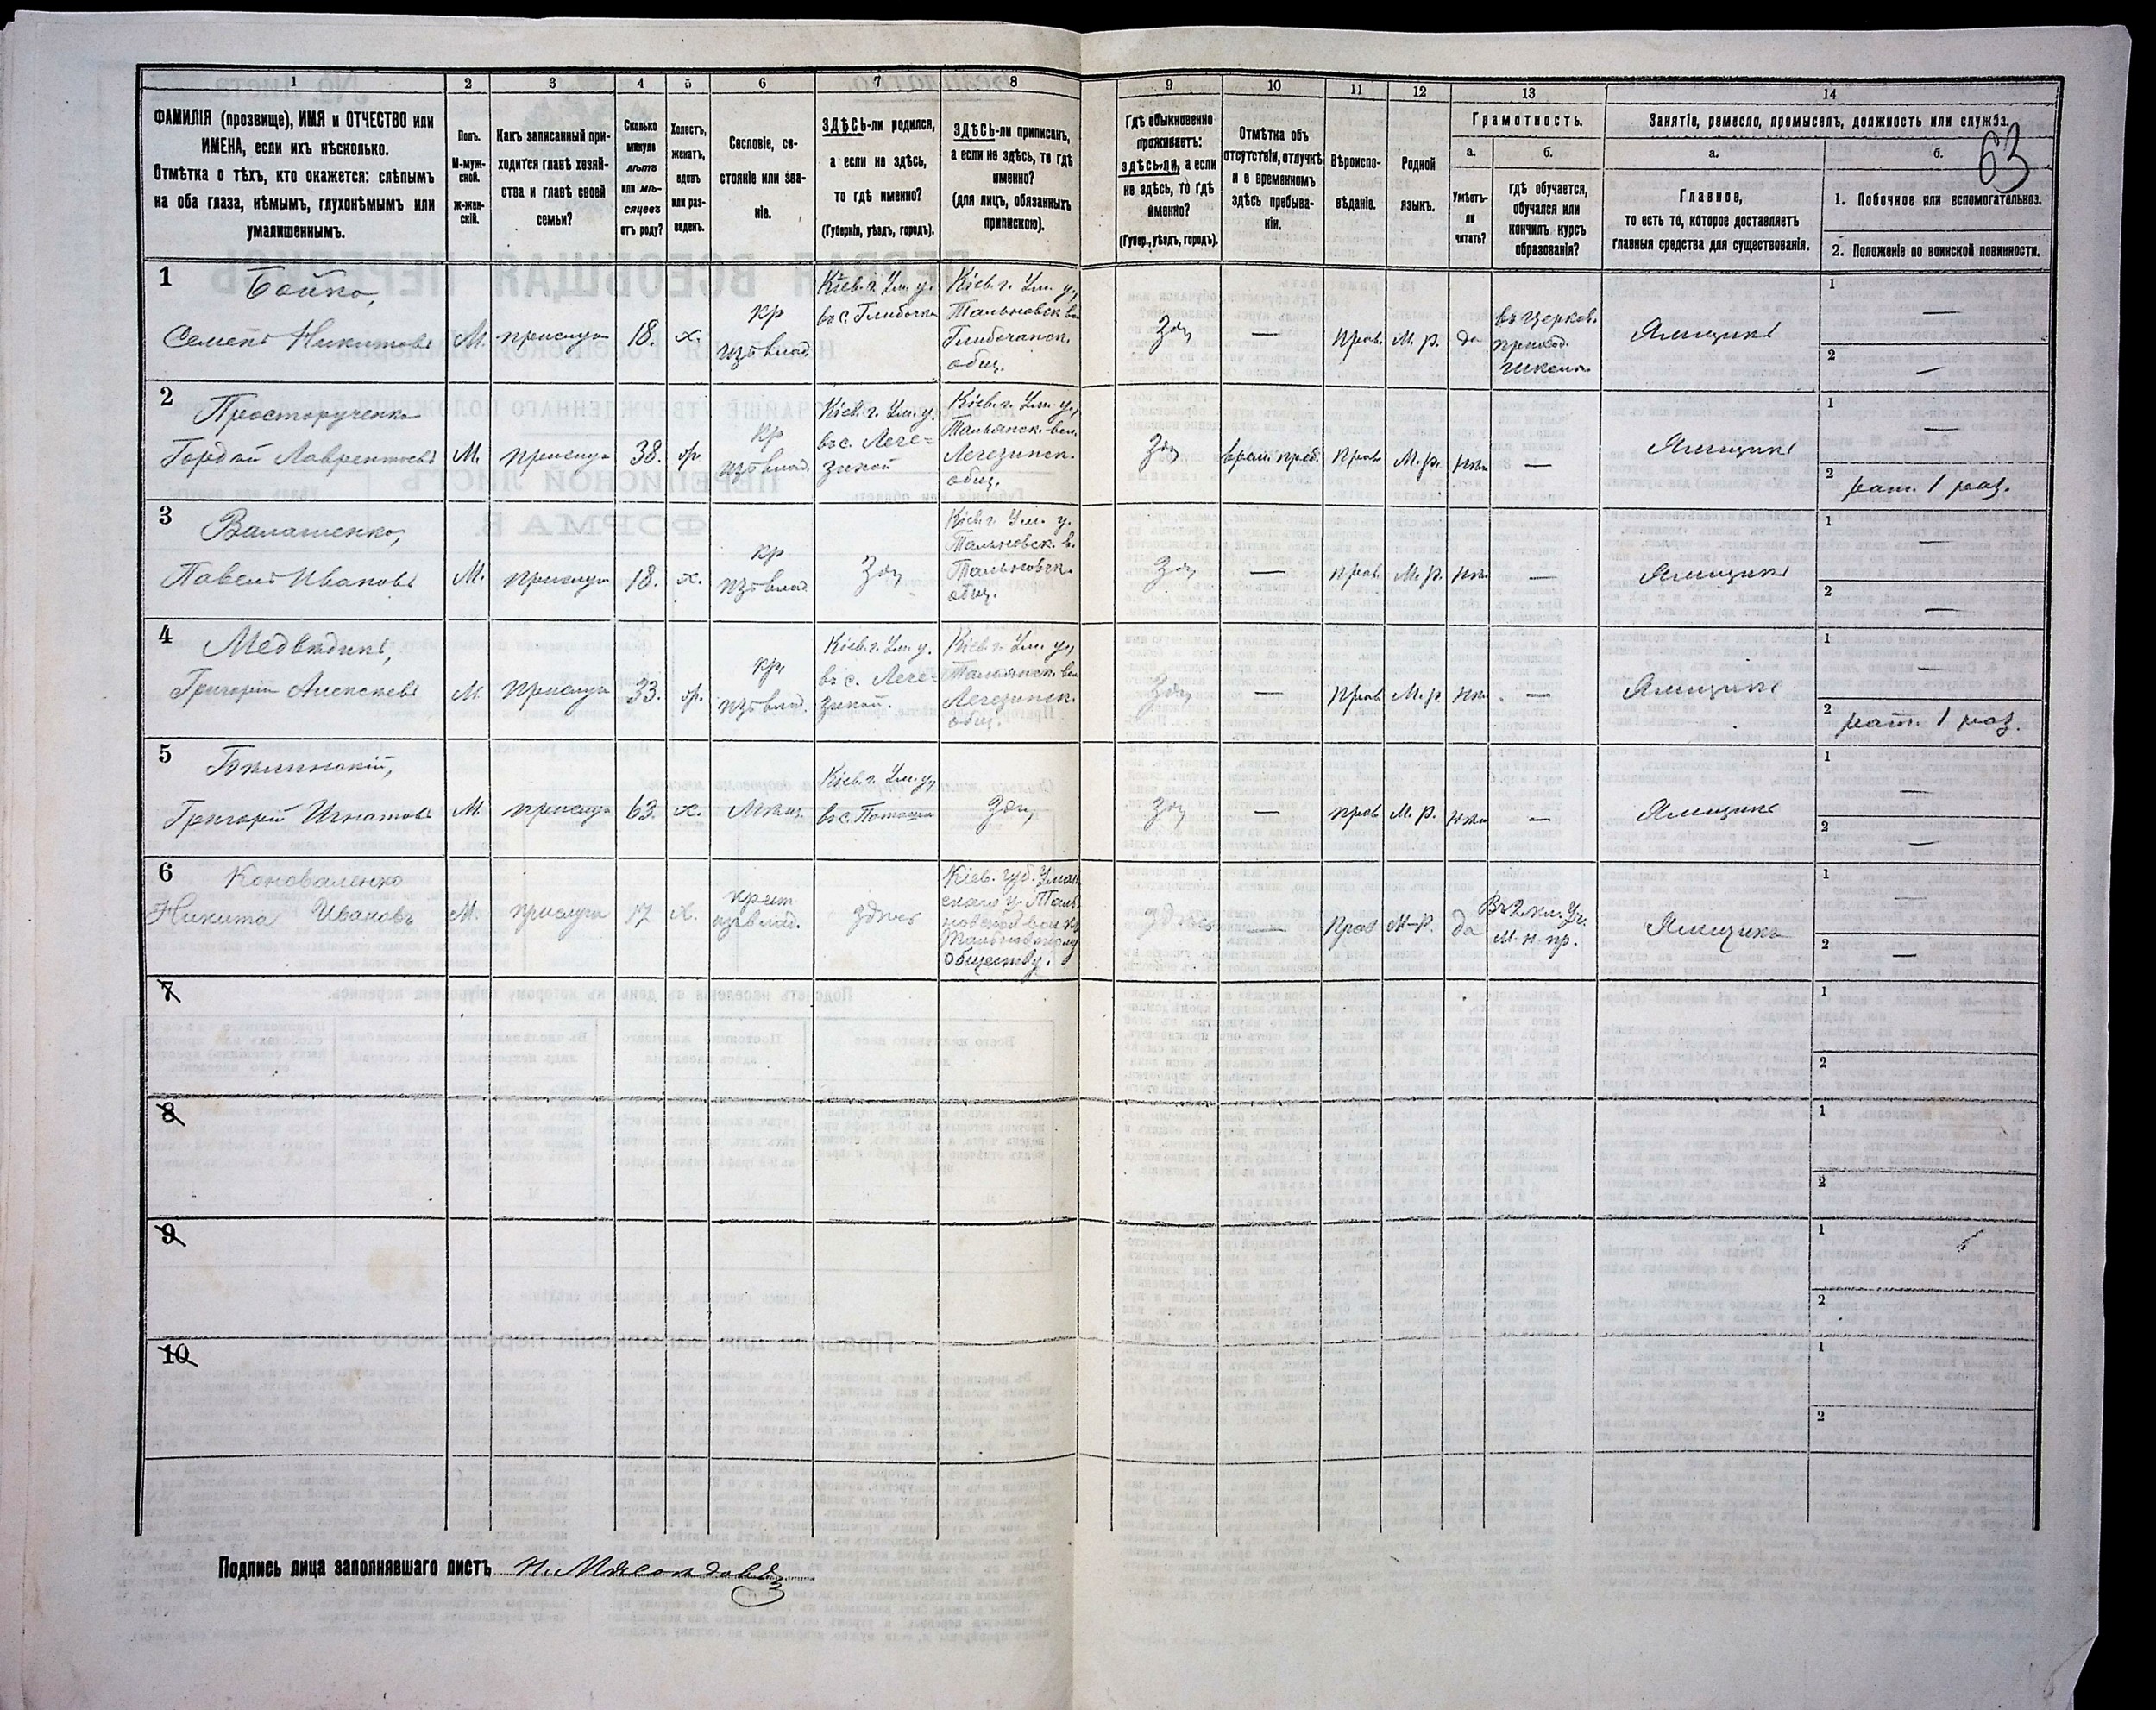 63
1 2 3 4 5 6 7 8 9 10 11 12 13 14
ФАМИЛІЯ (прозвище), ИМЯ и ОТЧЕСТВО или
ИМЕНА, если ихъ нѣсколько.
Отмѣтка о тѣхъ, кто окажется: слѣпымъ
на оба глаза, нѣмымъ, глухонѣмымъ или
умалишеннымъ.
Полъ.
М-муж-
ской.
ж-жен-
скій.
Какъ записанный при-
ходится главѣ хозяй-
ства и главѣ своей
семьи?
Сколько
минуло
лѣтъ
или мѣ-
сяцевъ
отъ роду?
Холостъ,
женатъ,
вдовъ
или раз-
веденъ.
Сословіе, со-
стояніе или зва-
ніе.
ЗДѢСЬ-ли родился,
а если не здѣсь,
то гдѣ именно?
(Губернія, уѣздъ, городъ).
ЗДѢСЬ-ли приписанъ,
а если не здѣсь, то гдѣ
именно?
(для лицъ, обязанныхъ
припискою).
Гдѣ обыкновенно
проживаетъ:
здѣсь-ли, а если
не здѣсь, то гдѣ
именно?
(Губер., уѣздъ, городъ).
Отмѣтка объ
отсутствіи, отлучкѣ
и о временномъ
здѣсь пребыва-
ніи.
Вѣроиспо-
вѣданіе.
Родной
языкъ.
Грамотность.
а.
Умѣетъ-
ли
читать?
б.
гдѣ обучается,
обучался или
кончилъ курсъ
образованія?
Занятіе, ремесло, промыселъ, должность или служба.
а.
Главное,
то есть то, которое доставляетъ
главныя средства для существованія.
б.
1. Побочное или вспомогательное.
2. Положеніе по воинской повинности.
1
Бойко,
Семенъ Никитовъ
М. прислуга 18. х.
кр
изъ влад.
Кіев. г. Ум. у.
въ с. Глибочка
Кіев. г. Ум. у.,
Тальновск. в.
Глибочанск.
общ.
Здѣ — Прав. М. р. да
въ церков.
приход.
школѣ
Ямщикъ
1 —
2 —
2
Просторученко
Гордѣй Лаврентіевъ
М. прислуга 38.
кр
изъ влад.
Кіев. г. Ум. у.
въ с. Леге=
зиной
Кіев. г. Ум. у.,
Тальянск. вол.
Легезинск.
общ.
Здѣ врем. преб. Прав. М. р. нѣт —
Ямщикъ
1 —
2 рат. 1 раз.
3
Валашенко,
Павелъ Ивановъ
М. прислуга 18. х.
кр
изъ влад.
Здѣ
Кіев. г. Ум. у.
Тальновск. в.
Тальновск.
общ.
Здѣ — прав. М. р. нѣт —
Ямщикъ
1 —
2 —
4
Медвѣдикъ,
Григорій Алексѣевъ
М. прислуга 33.
кр.
изъ влад.
Кіев. г. Ум. у.
въ с. Леге-
зиной.
Кіев. г. Ум. у.,
Тальянск. вол.
Легезинск.
общ.
Здѣ — прав. М. р. нѣт —
Ямщикъ
1 —
2 рат. 1 раз.
5
Бѣлинскій,
Григорій Игнатовъ
М. прислуга 63. х. Мѣщ.
Кіев. г. Ум. у.,
въ с. Поташи
Здѣ Здѣ — прав. М. р. нѣт —
Ямщикъ
1 —
2 —
6
Коноваленко
Никита Ивановъ
М. прислуга 17 х.
крест.
изъ влад.
здѣсь
Кіев. губ. Уман
скаго у. Таль-
новской вол. къ
Тальновскому
обществу.
здѣсь — Прав М-р. да
Въ 2 кл. Уч.
М. н. пр.
Ямщикъ
1 —
2 —
7
1
2
8
1
2
9
1
2
10
1
2
Подпись лица заполнявшаго листъ Н. Мясоѣдовъ